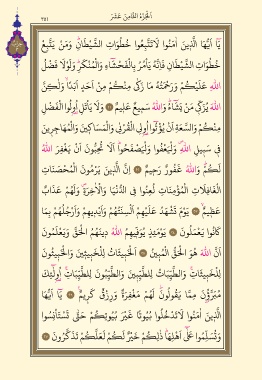 الجزء الثامن عشر
٣٥١
يَا أَيُّهَا الَّذِينَ آمَنُوا لَا تَتَّبِعُوا خُطُوَاتِ الشَّيْطَانِ وَمَنْ يَتَّبِعْ
خُطُوَاتِ الشَّيْطَانِ فَإِنَّهُ يَأْمُرُ بِالْفَحْشَاءِ وَالْمُنْكَرِ وَلَوْلَا فَضْلُ
اللهِ عَلَيْكُمْ وَرَحْمَتُهُ مَا زَكَى مِنْكُمْ مِنْ أَحَدٍ أَبَدًا وَلَكِنَّ
اللهَ يُزَكِّي مَنْ يَشَاءُ وَاللهُ سَمِيعٌ عَلِيمٌ ۝ وَلَا يَأْتَلِ أُولُوا الْفَضْلِ
مِنْكُمْ وَالسَّعَةِ أَنْ يُؤْتُوا أُولِي الْقُرْبَى وَالْمَسَاكِينَ وَالْمُهَاجِرِينَ
فِي سَبِيلِ اللهِ وَلْيَعْفُوا وَلْيَصْفَحُوا أَلَا تُحِبُّونَ أَنْ يَغْفِرَ اللهُ
لَكُمْ وَاللهُ غَفُورٌ رَحِيمٌ ۝ إِنَّ الَّذِينَ يَرْمُونَ الْمُحْصَنَاتِ
الْغَافِلَاتِ الْمُؤْمِنَاتِ لُعِنُوا فِي الدُّنْيَا وَالْآخِرَةِ وَلَهُمْ عَذَابٌ
عَظِيمٌ ۝ يَوْمَ تَشْهَدُ عَلَيْهِمْ أَلْسِنَتُهُمْ وَأَيْدِيهِمْ وَأَرْجُلُهُمْ بِمَا
كَانُوا يَعْمَلُونَ ۝ يَوْمَئِذٍ يُوَفِّيهِمُ اللهُ دِينَهُمُ الْحَقَّ وَيَعْلَمُونَ
أَنَّ اللهَ هُوَ الْحَقُّ الْمُبِينُ ۝ الْخَبِيثَاتُ لِلْخَبِيثِينَ وَالْخَبِيثُونَ
لِلْخَبِيثَاتِ وَالطَّيِّبَاتُ لِلطَّيِّبِينَ وَالطَّيِّبُونَ لِلطَّيِّبَاتِ أُولَئِكَ
مُبَرَّؤُنَ مِمَّا يَقُولُونَ لَهُمْ مَغْفِرَةٌ وَرِزْقٌ كَرِيمٌ ۝ يَا أَيُّهَا
الَّذِينَ آمَنُوا لَا تَدْخُلُوا بُيُوتًا غَيْرَ بُيُوتِكُمْ حَتَّى تَسْتَأْنِسُوا
وَتُسَلِّمُوا عَلَى أَهْلِهَا ذَلِكُمْ خَيْرٌ لَكُمْ لَعَلَّكُمْ تَذَكَّرُونَ ۝